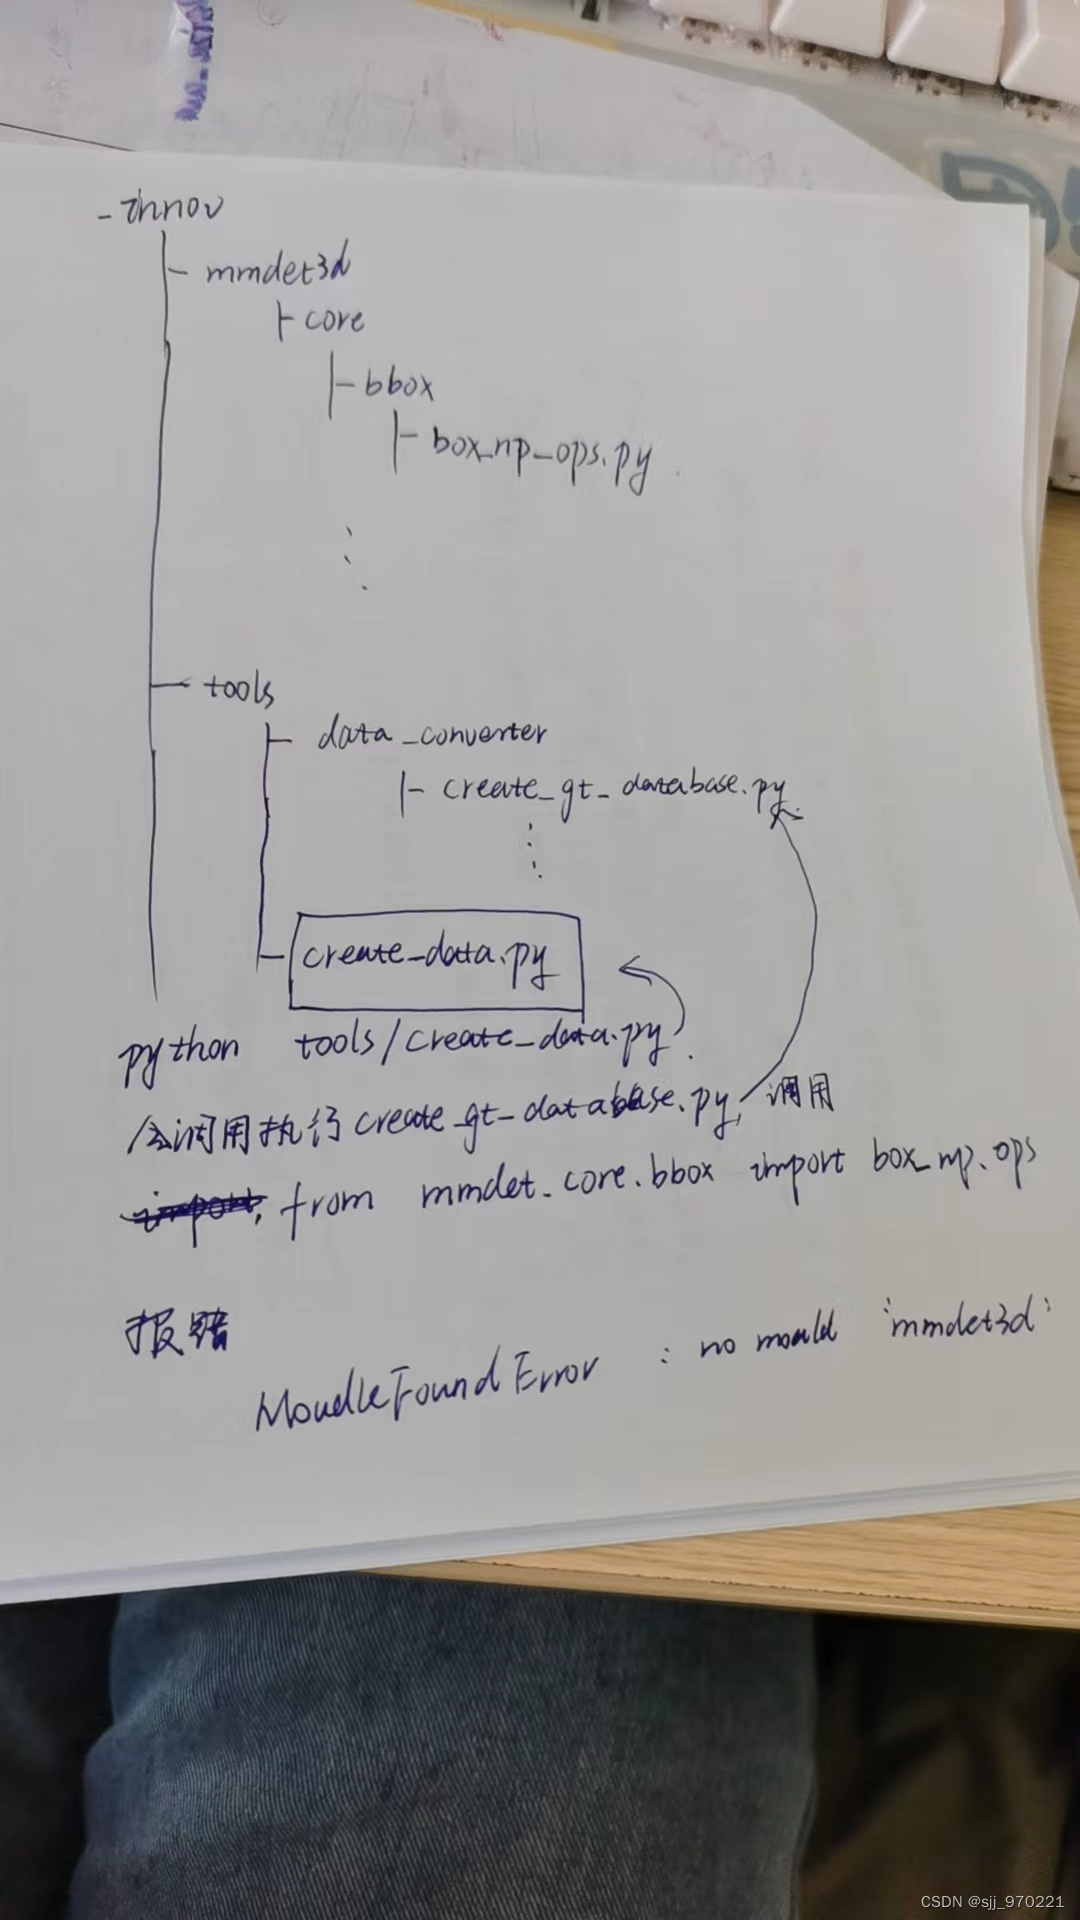 - innov
mmdet3d
core
bbox
box_np_ops.py
tools
data_converter
create_gt_database.py
create_data.py
python tools/create_data.py
会调用执行create_gt_database.py, 调用
from mmdet_core.bbox import box_np.ops
报错
MoudleFoundError : no moald 'mmdet3d'
CSDN @sjj_970221